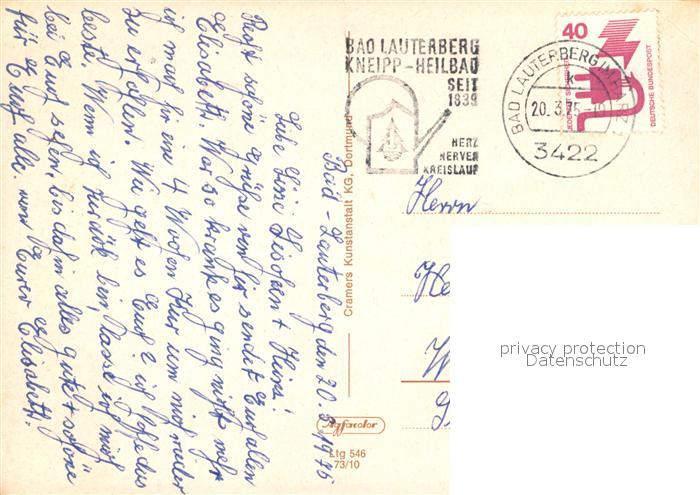 Bad-Lauterberg den 20.3.1975
Liebe Leni Lischen + Heinz!
Recht schöne Grüße von hir sendet Euch allen
Elisabeth. War so krank es ging nicht mehr
ich mach hir eine 4 Wochen Kur um mich wieder
zu erhollen. Wie geht es Euch? ich hoffe das
beste. Wenn ich zurück bin, lasse ich mich
bei Euch sehen, bis dahin alles gute + schöne
für Euch alle von Eurer Elisabeth.
Cramers Kunstanstalt KG, Dortmund
BAD LAUTERBERG
KNEIPP-HEILBAD
SEIT
1839
HERZ
NERVEN
KREISLAUF
BAD LAUTERBERG IM HARZ
k
20.3.75-19
3422
40
JEDERZEIT SICHERHEIT
DEUTSCHE BUNDESPOST
Herrn
He
W
Agfacolor
Ltg 546
73/10
privacy protection
Datenschutz